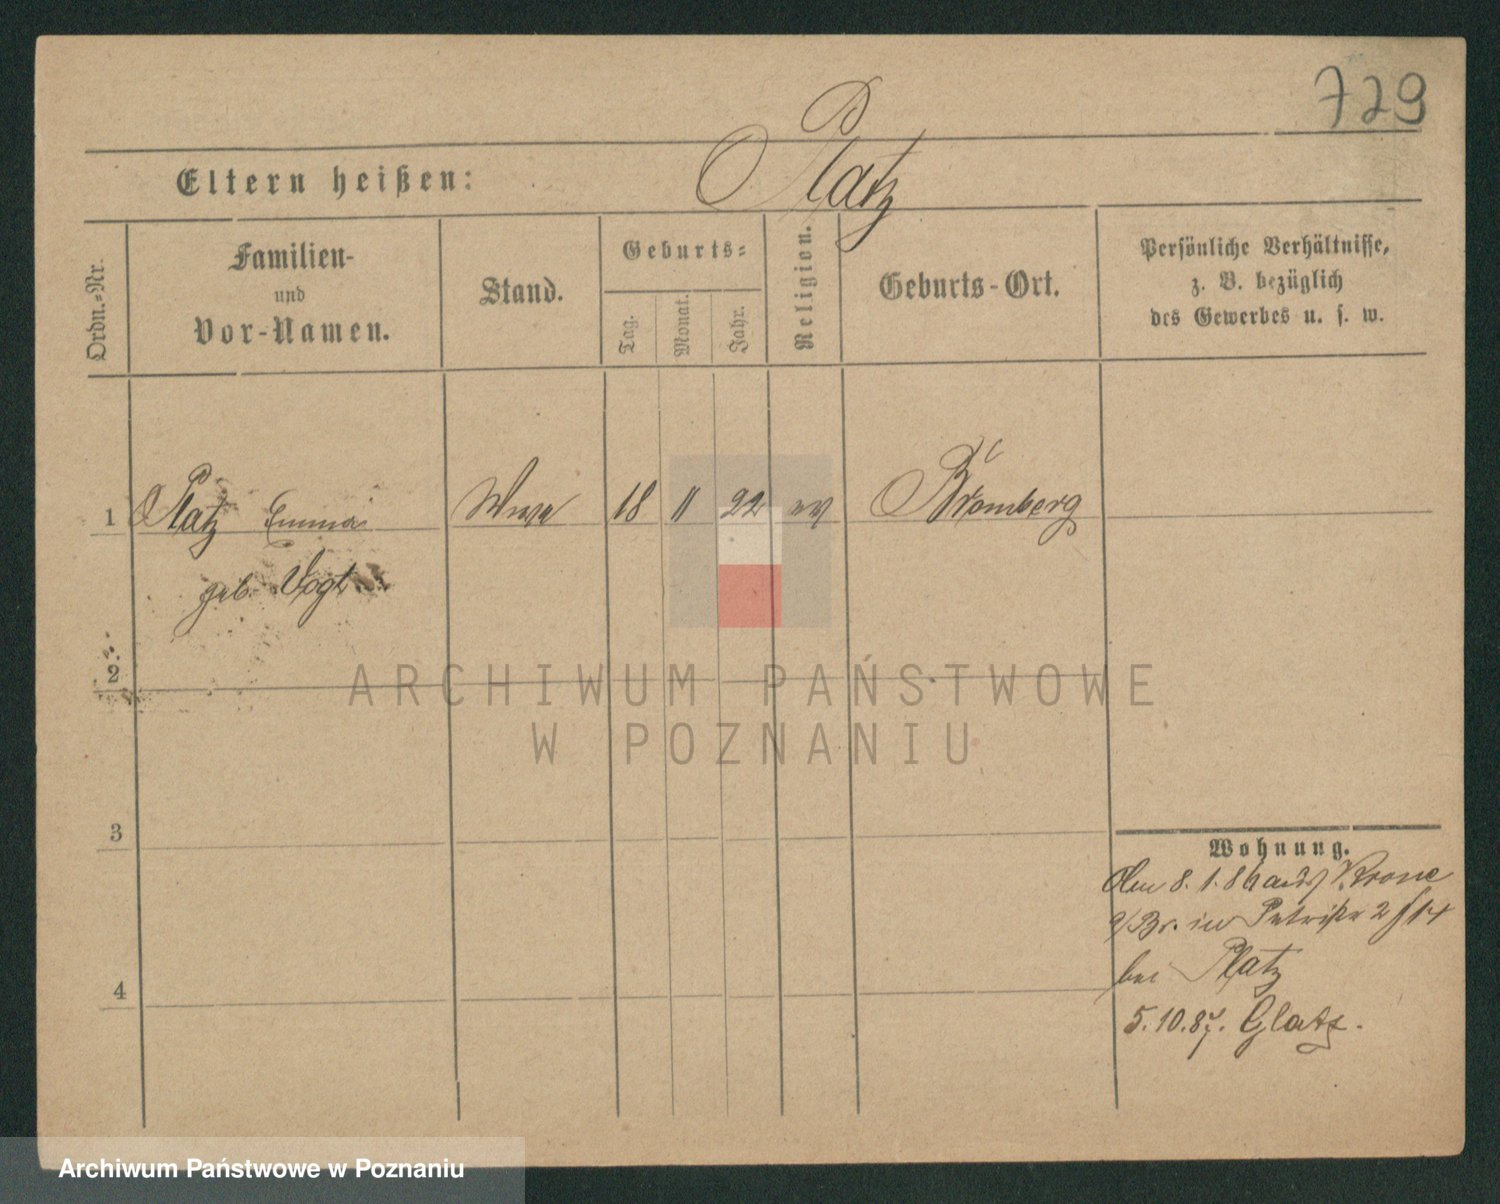 729
Platz
Eltern heißen:
Ordn.=Nr.
Familien-
und
Vor-Namen.
Stand.
Geburts=
Tag.
Monat.
Jahr.
Religion.
Geburts-Ort.
Persönliche Verhältnisse,
z. B. bezüglich
des Gewerbes u. s. w.
1 Platz Emma Wwe 18 11 22 ev Bromberg
geb. Vogt
2
ARCHIWUM PAŃSTWOWE
W POZNANIU
3
Wohnung.
Den 8. 1. 86 aus Krone
a/Br. in Petristr 2 f 14
bei Platz
4
5.10.87. Glatz.
Archiwum Państwowe w Poznaniu